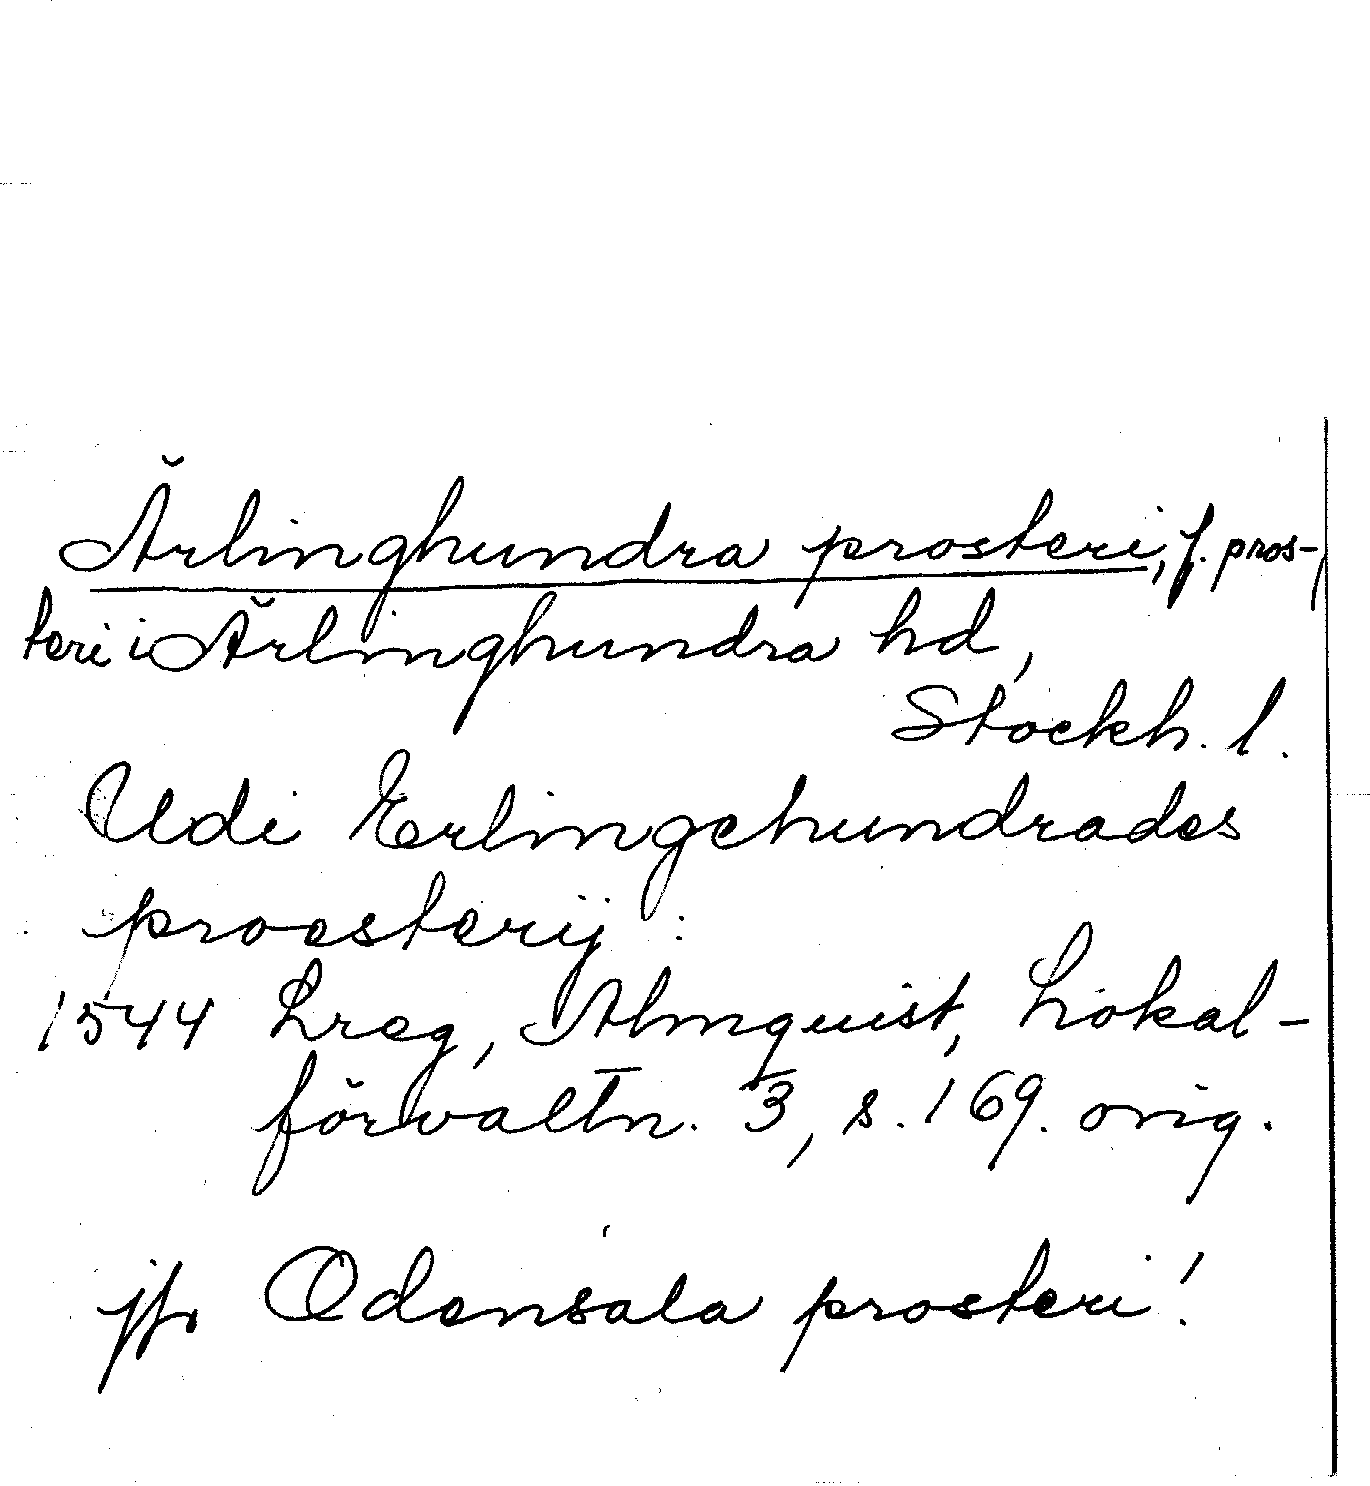 Ärlinghundra prosteri, f. pros-
teri i Ärlinghundra hd,
Stockh. l.
Udi Erlingehundrades
proesterij:
1544 Lreg, Almquist, Lokal-
förvaltn. 3, s. 169. orig.
jfr Odensala prosteri!